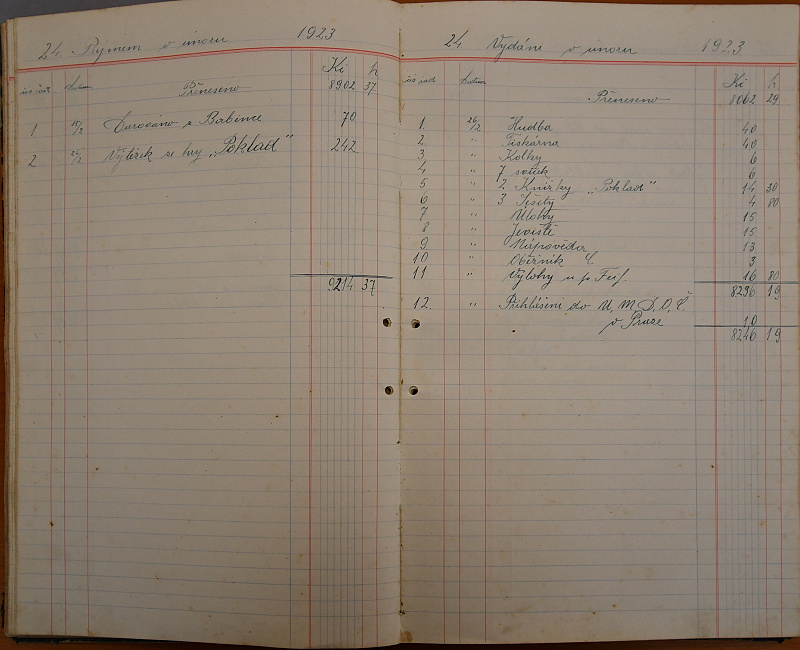 24. Příjmem v únoru 1923
čís řad datum Kč h
Přeneseno 8902 37
1 15/2 Darováno z Babince 70
2 26/2 Výtěžek ze hry „Poklad" 242
9214 37
24 Vydání v únoru 1923
čís řad datum Kč h
Přeneseno 8062 29
1. 26/2 Hudba 40
2 " Tiskárna 40
3 " Kolky 6
4 " 7 sošek 6
5 " 2 Knížky „Poklad" 14 30
6 " 3 Sešity 4 80
7 " Úlohy 15
8 " Jeviště 15
9 " Nápověda 13
10 " Oběžník 3
11 " Výlohy u p. 16 80
8236 19
12. " Přihlášení do Ú. M. D. O. Č.
v Praze 10
8246 19